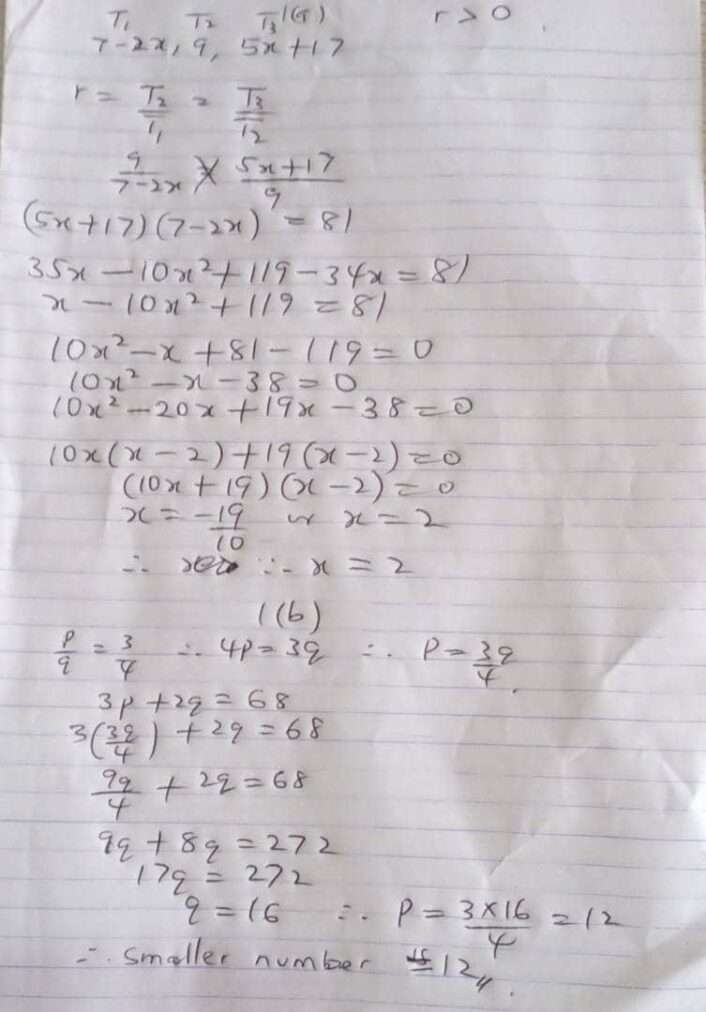 T₁ T₂ T₃ 1(a) r > 0.
7-2x, 9, 5x+17
r = T₂/T₁ = T₃/T₂
9/(7-2x) × (5x+17)/9
(5x+17)(7-2x) = 81
35x - 10x² + 119 - 34x = 81
x - 10x² + 119 = 81
10x² - x + 81 - 119 = 0
10x² - x - 38 = 0
10x² - 20x + 19x - 38 = 0
10x(x-2) + 19(x-2) = 0
(10x+19)(x-2) = 0
x = -19/10 or x = 2
∴ ∴ x = 2
1(b)
p/q = 3/4 ∴ 4p = 3q ∴ P = 3q/4.
3p + 2q = 68
3(3q/4) + 2q = 68
9q/4 + 2q = 68
9q + 8q = 272
17q = 272
q = 16 ∴ P = 3×16/4 = 12
∴ smaller number is 12,,.